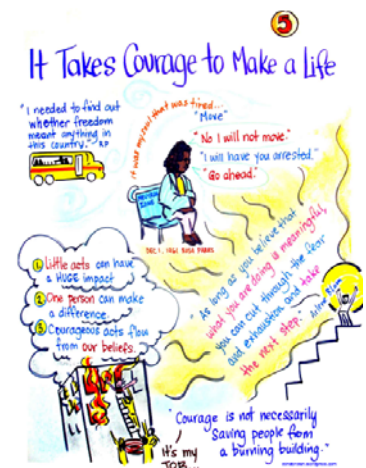 5
It Takes Courage to Make a Life
"I needed to find out
whether freedom
meant anything in
this country." RP
it was my soul that was tired...
"Move"
"No I will not move."
"I will have you arrested."
"Go ahead."
DEC 1, ROSA PARKS
1 Little acts can have
a HUGE impact
2 One person can make
a difference.
3 Courageous acts flow
from our beliefs.
"As long as you believe that
what you are doing is meaningful,
you can cut through the fear
and exhaustion and take
the next step."
It's my
JOB...
"Courage is not necessarily
saving people from
a burning building."